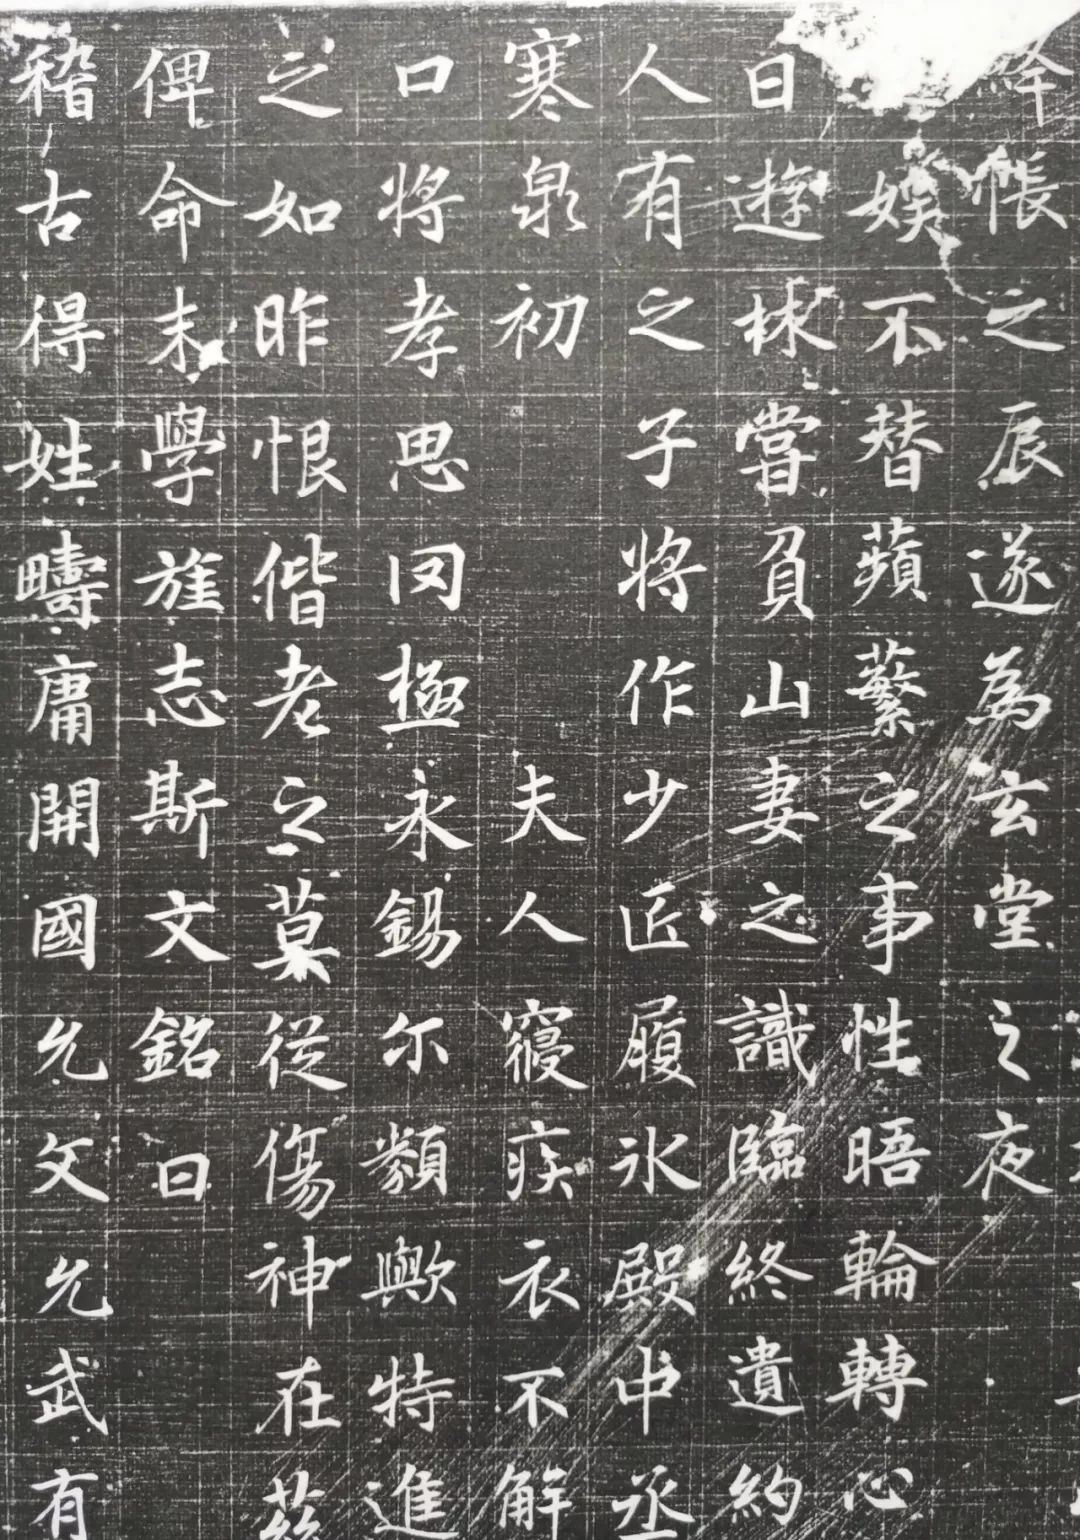 帳之辰遂為玄堂之夜
娛不替蘋蘩之事性晤輪轉心
日遊林嘗負山妻之識臨終遺約
人有之子將作少匠履氷殿中丞
寒泉初 夫人寢疾衣不解
口將孝思罔極永錫尒類歟特進
之如昨恨偕老之莫從傷神在茲
俾命末學旌志斯文銘曰
稽古得姓疇庸開國允文允武有